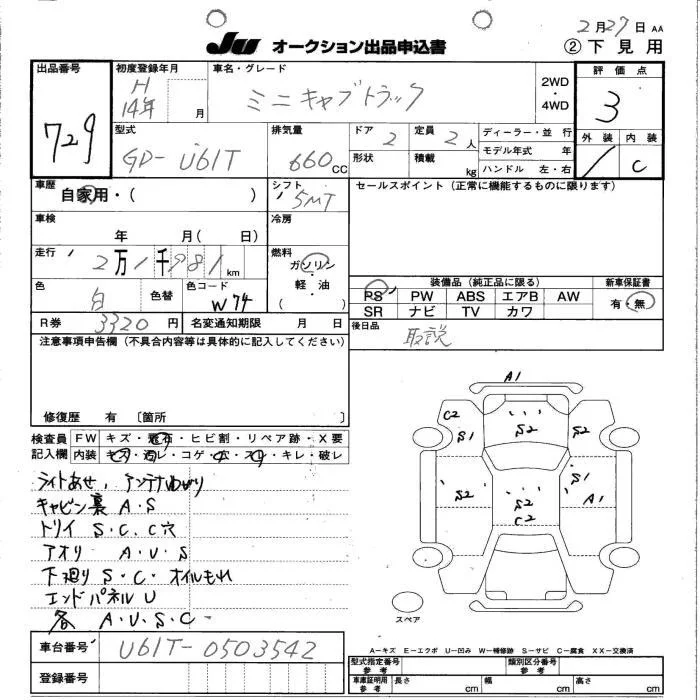 2月27日 AA
JU オークション出品申込書
② 下見用
出品番号
729
初度登録年月
H
14年 月
車名・グレード
ミニキャブトラック
2WD
・
4WD
評価点
3
外装 内装
C
型式
GD-U61T
排気量
660 CC
ドア 2
定員 2 人
形状
積載 kg
ディーラー・並 行
モデル年式 年
ハンドル 左・右
車歴
自家用・( )
シフト
5MT
セールスポイント (正常に機能するものに限ります)
車検
年 月( 日)
冷房
走行
2万1千981 km
燃料
ガソリン
・
軽 油
( )
色
白
色替
色コード
W74
装備品 (純正品に限る)
PS PW ABS エアB AW
SR ナビ TV カワ
新車保証書
有・無
R券 3320 円
名変通知期限 月 日
後日品
取説
注意事項申告欄 (不具合内容等は具体的に記入してください)
修復歴 有 〔箇所 〕
検査員
記入欄
FW キズ・飛石・ヒビ割・リペア跡・X要
内装 キズ・汚レ・コゲ・穴・スレ・キレ・破レ
ライトあせ、アンテナ曲がり
キャビン裏 A・S
トリイ S・C・C穴
アオリ A・U・S
下廻り S・C・オイルもれ
エンドパネル U
各 A・U・S・C
A1
C2
S1
S2
S2
S1
S2
S2
C2
S1
A1
スペア
車台番号
U61T-0503542
登録番号
A-キズ E-エクボ U-凹み W-補修跡 S-サビ C-腐食 XX-交換済
型式指定番号
参 考
類別区分番号
参 考
車庫証明用
参 考
長さ cm
幅 cm
高さ cm